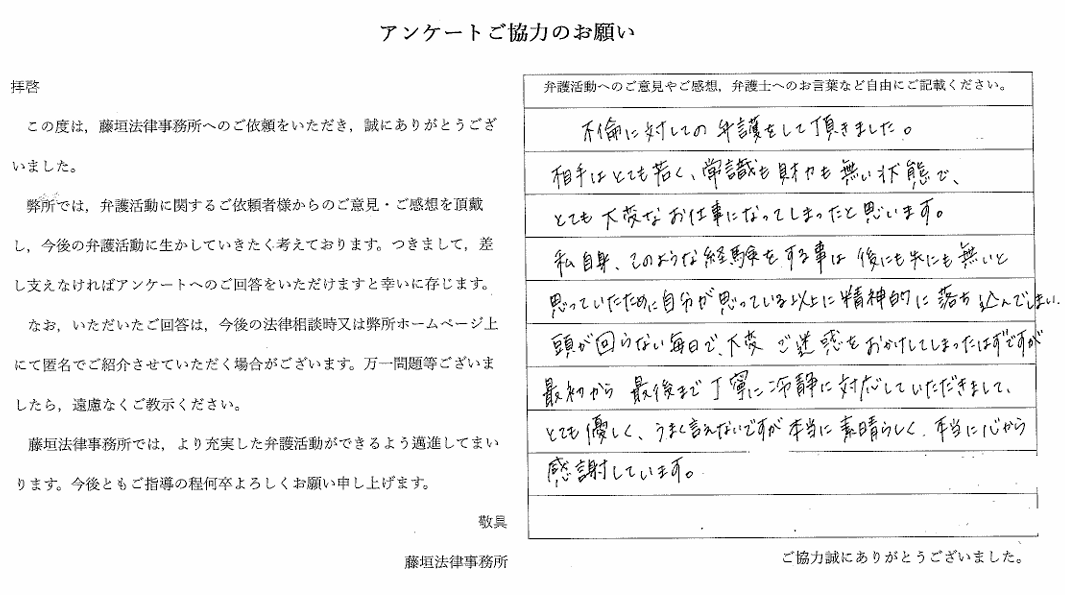 アンケートご協力のお願い
拝啓
この度は，藤垣法律事務所へのご依頼をいただき，誠にありがとうござ
いました。
弊所では，弁護活動に関するご依頼者様からのご意見・ご感想を頂戴
し，今後の弁護活動に生かしていきたく考えております。つきまして，差
し支えなければアンケートへのご回答をいただけますと幸いに存じます。
なお，いただいたご回答は，今後の法律相談時又は弊所ホームページ上
にて匿名でご紹介させていただく場合がございます。万一問題等ございま
したら，遠慮なくご教示ください。
藤垣法律事務所では，より充実した弁護活動ができるよう邁進してまい
ります。今後ともご指導の程何卒よろしくお願い申し上げます。
敬具
藤垣法律事務所
弁護活動へのご意見やご感想，弁護士へのお言葉など自由にご記載ください。
不倫に対しての弁護をして頂きました。
相手はとても若く、常識も財力も無い状態で、
とても大変なお仕事になってしまったと思います。
私自身、このような経験をする事は後にも先にも無いと
思っていたために自分が思っている以上に精神的に落ち込んでしまい、
頭が回らない毎日で、大変ご迷惑をおかけしてしまったはずですが
最初から最後まで丁寧に冷静に対応していただきまして、
とても優しく、うまく言えないですが本当に素晴らしく、本当に心から
感謝しています。
ご協力誠にありがとうございました。